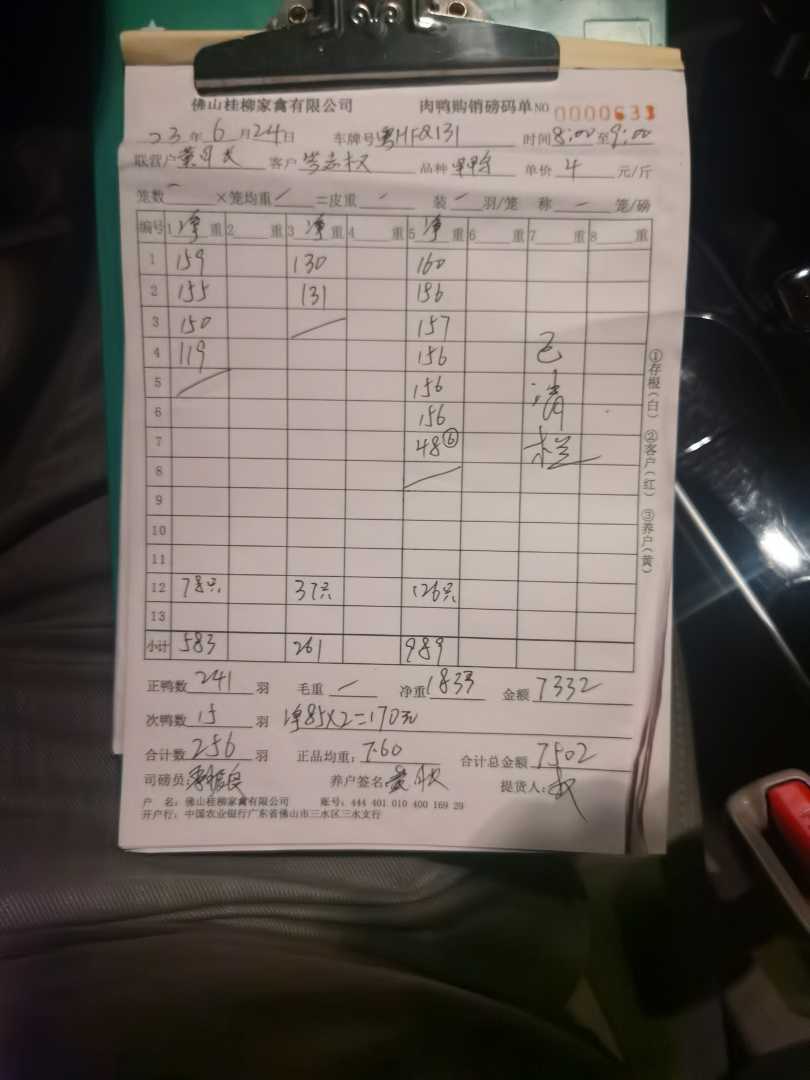 佛山桂柳家禽有限公司 肉鸭购销磅码单NO 0000633
23年6月24日 车牌号粤HFQ131 时间8:00至9:00
联营户黄 客户岑志权 品种 单价4元/斤
笼数一×笼均重／=皮重一 装一羽/笼 称一笼/磅
编号 1净重 2重 3净重 4重 5净重 6重 7重 8重
1 159 130 160
2 155 131 156
3 150 ／ 157
4 119 156
5 ／ 156
6 156
7 48⑥
8 ／
9
10
11
12 78只 37只 126只
13
小计 583 261 989
已清栏
①存根(白) ②客户(红) ③养户(黄)
正鸭数241羽 毛重／ 净重1833 金额7332
次鸭数15羽 净85×2=170元
合计数256羽 正品均重:7.60 合计总金额7502
司磅员: 养户签名:黄 提货人:权
户 名:佛山桂柳家禽有限公司 账号:444 401 010 400 169 29
开户行:中国农业银行广东省佛山市三水区三水支行